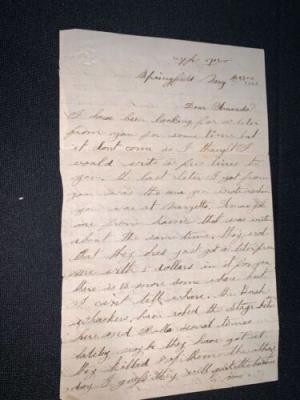 Springfield
Dear Amanda
I have been looking for a letter
from you for some time but
it dont come so I thought I
would write a few lines to
you. the last letter I got from
you was the one you wrote when
you was at
one from that was wrote
about the same time
that they had just got a letter from
me with 5 dollars in it for you
there is 15 more some where but
I can't tell where. the Bush
whackers have robed the stage be
here and Rolla several times
lately maybe they have got it
killed of them the other
day I guess they will quit the business